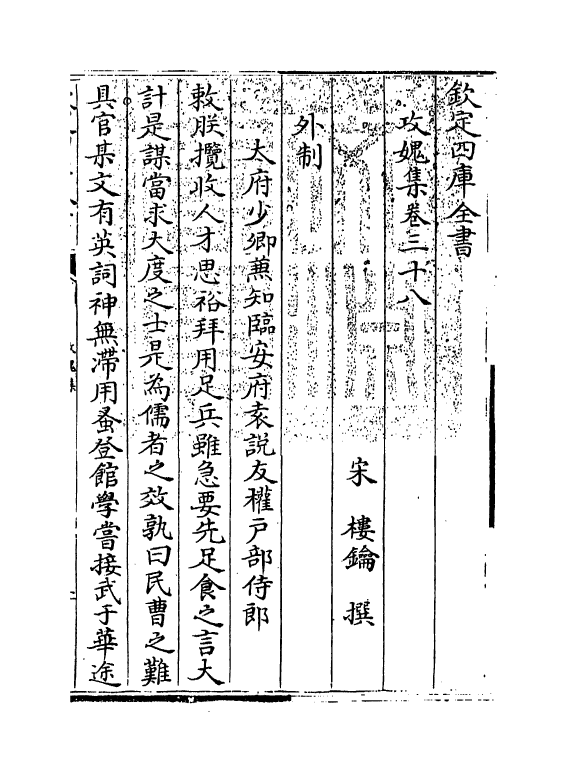 欽定四庫全書
攻媿集卷三十八
宋 樓鑰 撰
外制
太府少卿兼知臨安府袁説友權户部侍郎
敕朕攬收人才思裕拜用足兵雖急要先足食之言大
計是謀當求大度之士是為儒者之效孰曰民曹之難
具官某文有英詞神無滯用蚤登館學嘗接武于華途